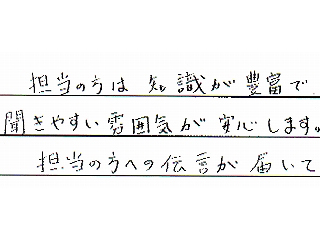 担当の方は 知識が 豊富で、
聞きやすい雰囲気が 安心します。
担当の方への伝言が 届いて